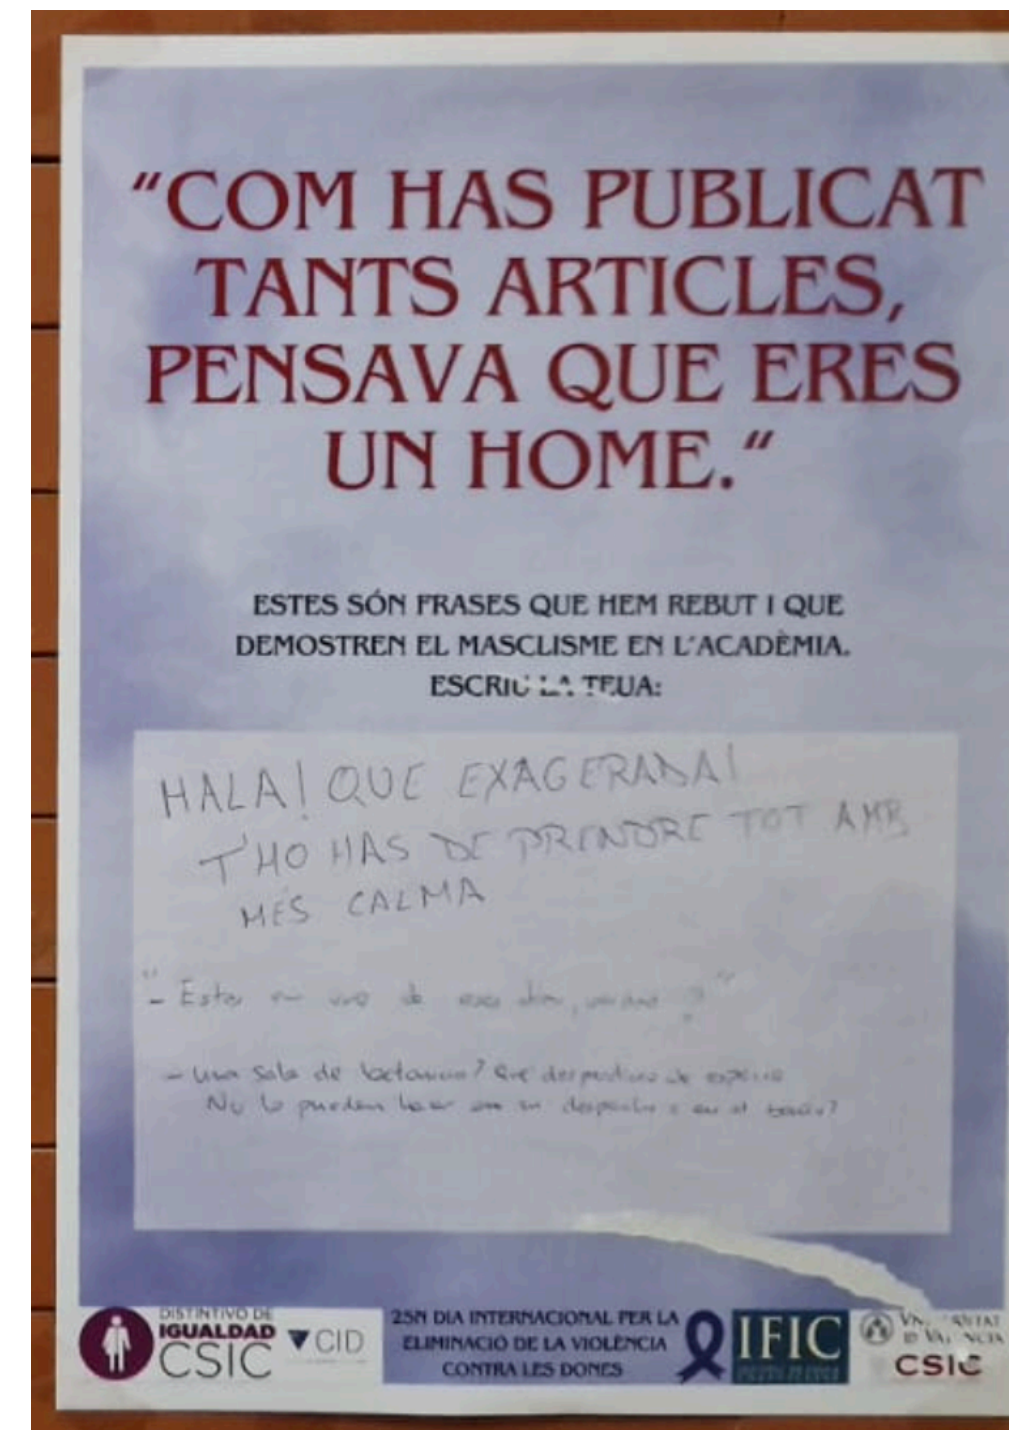 “COM HAS PUBLICAT
TANTS ARTICLES,
PENSAVA QUE ERES
UN HOME.“
ESTES SÓN FRASES QUE HEM REBUT I QUE
DEMOSTREN EL MASCLISME EN L'ACADÈMIA.
ESCRIU LA TEUA:
HALA! QUE EXAGERADA!
T'HO HAS DE PRENDRE TOT AMB
MÉS CALMA
"- Estas en uno de esos dias, verdad?"
- Una sala de lactancia? Que desperdicio de espacio
No lo pueden hacer en su despacho o en el baño?
DISTINTIVO DE
IGUALDAD
CSIC
CID
25N DIA INTERNACIONAL PER LA
ELIMINACIÓ DE LA VIOLÈNCIA
CONTRA LES DONES
IFIC
CSIC